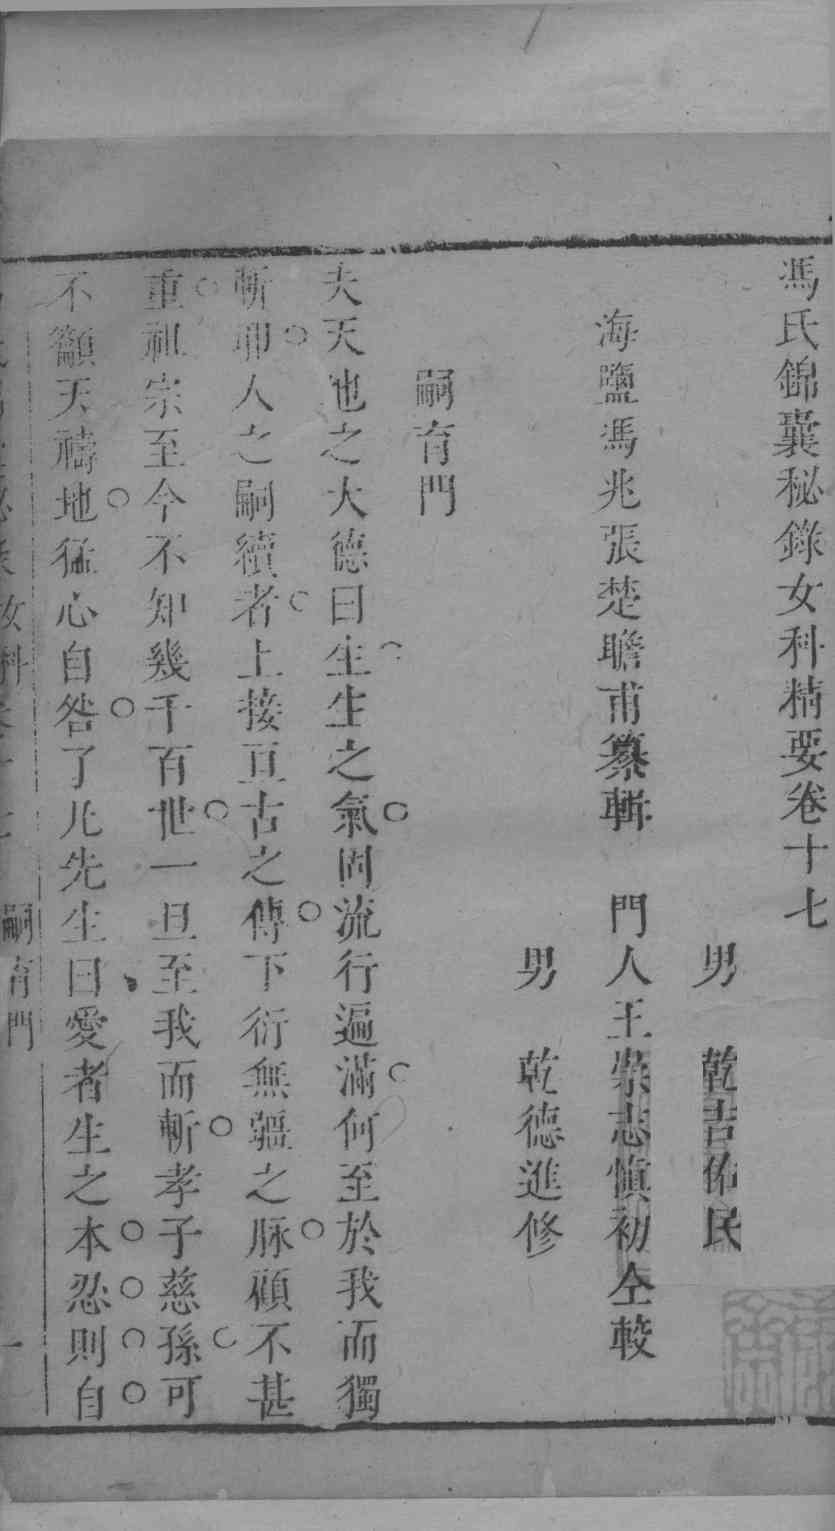 馮氏錦囊秘錄女科精要卷十七
男 乾吉佑民
海鹽馮兆張楚瞻甫纂輯 門人王崇志慎初仝較
男 乾德進修
嗣育門
夫天地之大德曰生生之氣固流行遍滿何至於我而獨
斬耶人之嗣續者上接亘古之傳下衍無疆之脉顧不甚
重祖宗至今不知幾千百世一旦至我而斬孝子慈孫可
不籲天禱地猛心自咎了凡先生曰愛者生之本忍則自
女科卷十七 嗣育門 一